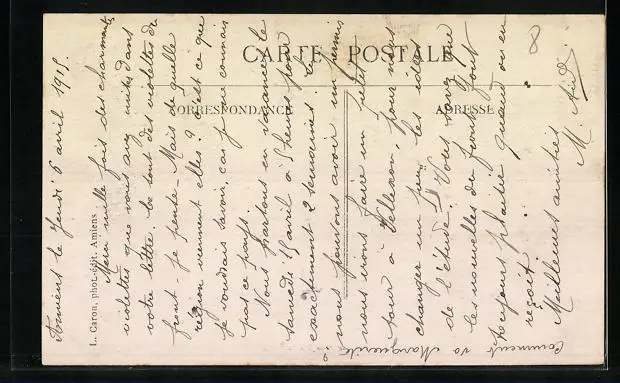 CARTE POSTALE
CORRESPONDANCE
ADRESSE
L. Caron, phot.-édit. Amiens
le Jeudi 6 avril 1915
Merci mille fois des charmantes
violettes que vous avez mises dans
votre lettre. Ce sont des violettes du
front je pense - Mais de quelle
région viennent elles ? C'est ce que
je voudrais savoir, car je ne connais
pas ce pays.
Nous partons en vacances le
samedi 15 avril à 5 heures pour
exactement 2 semaines. Et
nous pourrons avoir un permis
nous irons faire un petit
tour à pour nous
changer un peu les idées
de l'étude. Vous savez que
les nouvelles du front font
toujours plaisir quand on en
reçoit.
Meilleures amitiés
M.
Comment va Marguerite ?